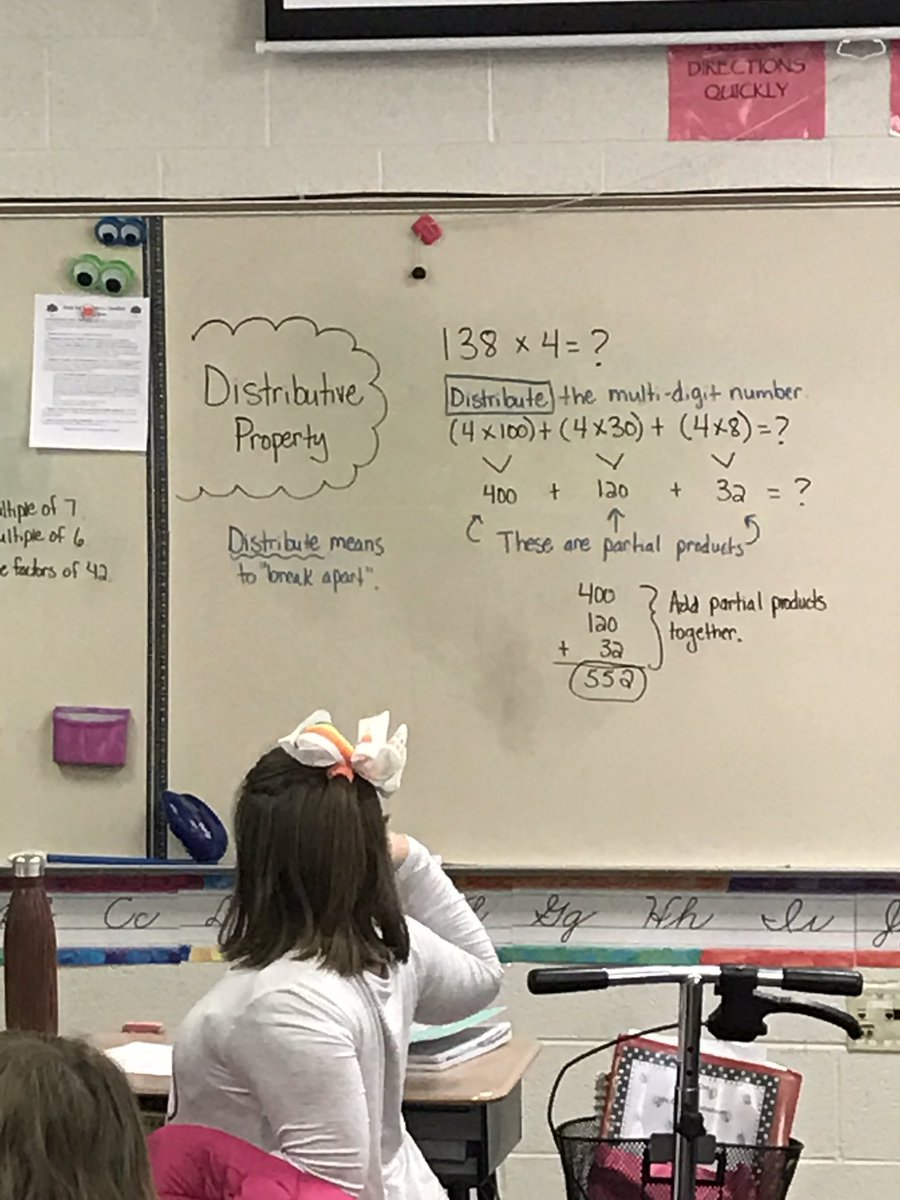 DIRECTIONS
QUICKLY
138 × 4 = ?
Distributive
Property
Distribute the multi-digit number.
(4 × 100) + (4 × 30) + (4 × 8) = ?
400 + 120 + 32 = ?
These are partial products
Distribute means
to "break apart".
400
120
+ 32
552
Add partial products
together.
of 7
of 6
factors of 42
Cc
Gg
Hh
Ii